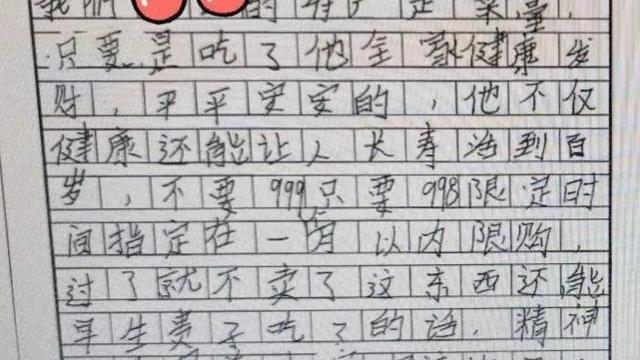 我们的特产是
只要是吃了他全家健康发
财，平平安安的，他不仅
健康还能让人长寿活到百
岁，不要999只要998限定时
间指定在一月以内限购，
过了就不卖了这东西还能
早生贵子吃了的话，精神